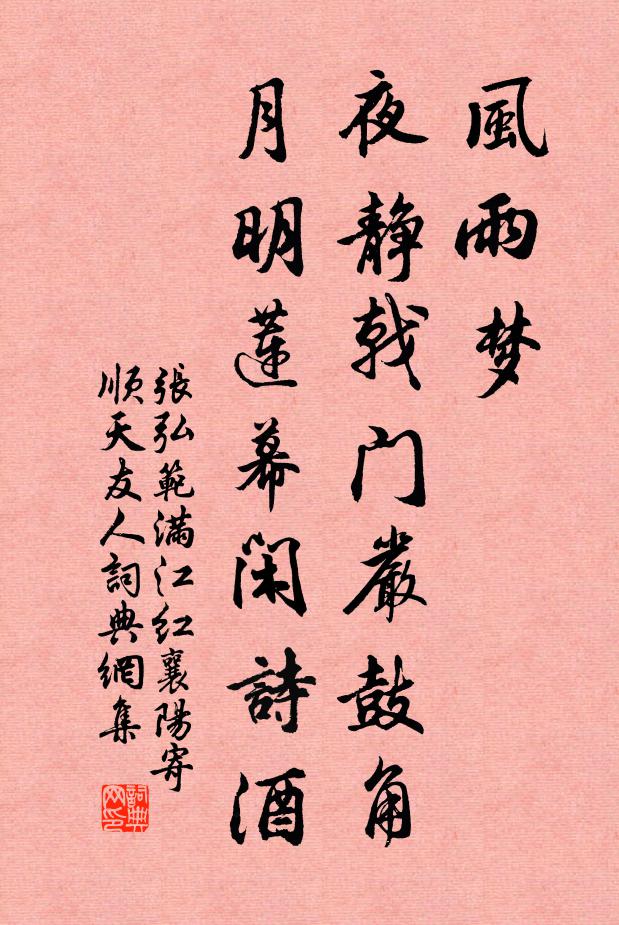 風雨梦
夜静戟门嚴鼓角
月明蓮幕閑詩酒
張弘範滿江红襄陽寄
順天友人詞典網集
詞典
网印